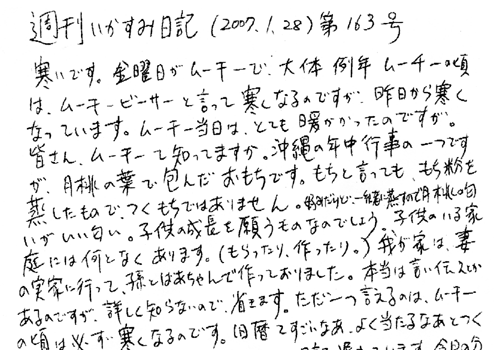 週刊いかすみ日記 (2007.1.28) 第163号
寒いです。金曜日がムーチーで、大体例年ムーチーの頃
は、ムーチービーサーと言って寒くなるのですが、昨日から寒く
なっています。ムーチー当日は、とても暖かかったのですが。
皆さん、ムーチーて知ってますか。沖縄の年中行事の一つです
が、月桃の葉で包んだおもちです。もちと言っても、もち粉を
蒸したもので、つくもちではありません。好みだけど、一緒に蒸すので月桃の匂
いがいい匂い。子供の成長を願うものなのでしょう。子供のいる家
庭には何となくあります。(もらったり、作ったり。) 我が家は、妻
の実家に行って、孫とばあちゃんで作っておりました。本当は言い伝えとか
あるのですが、詳しく知らないので、省きます。ただ一つ言えるのは、ムーチー
の頃は必ず寒くなるのです。旧暦てすごいなあ、よく当たるなあとつく